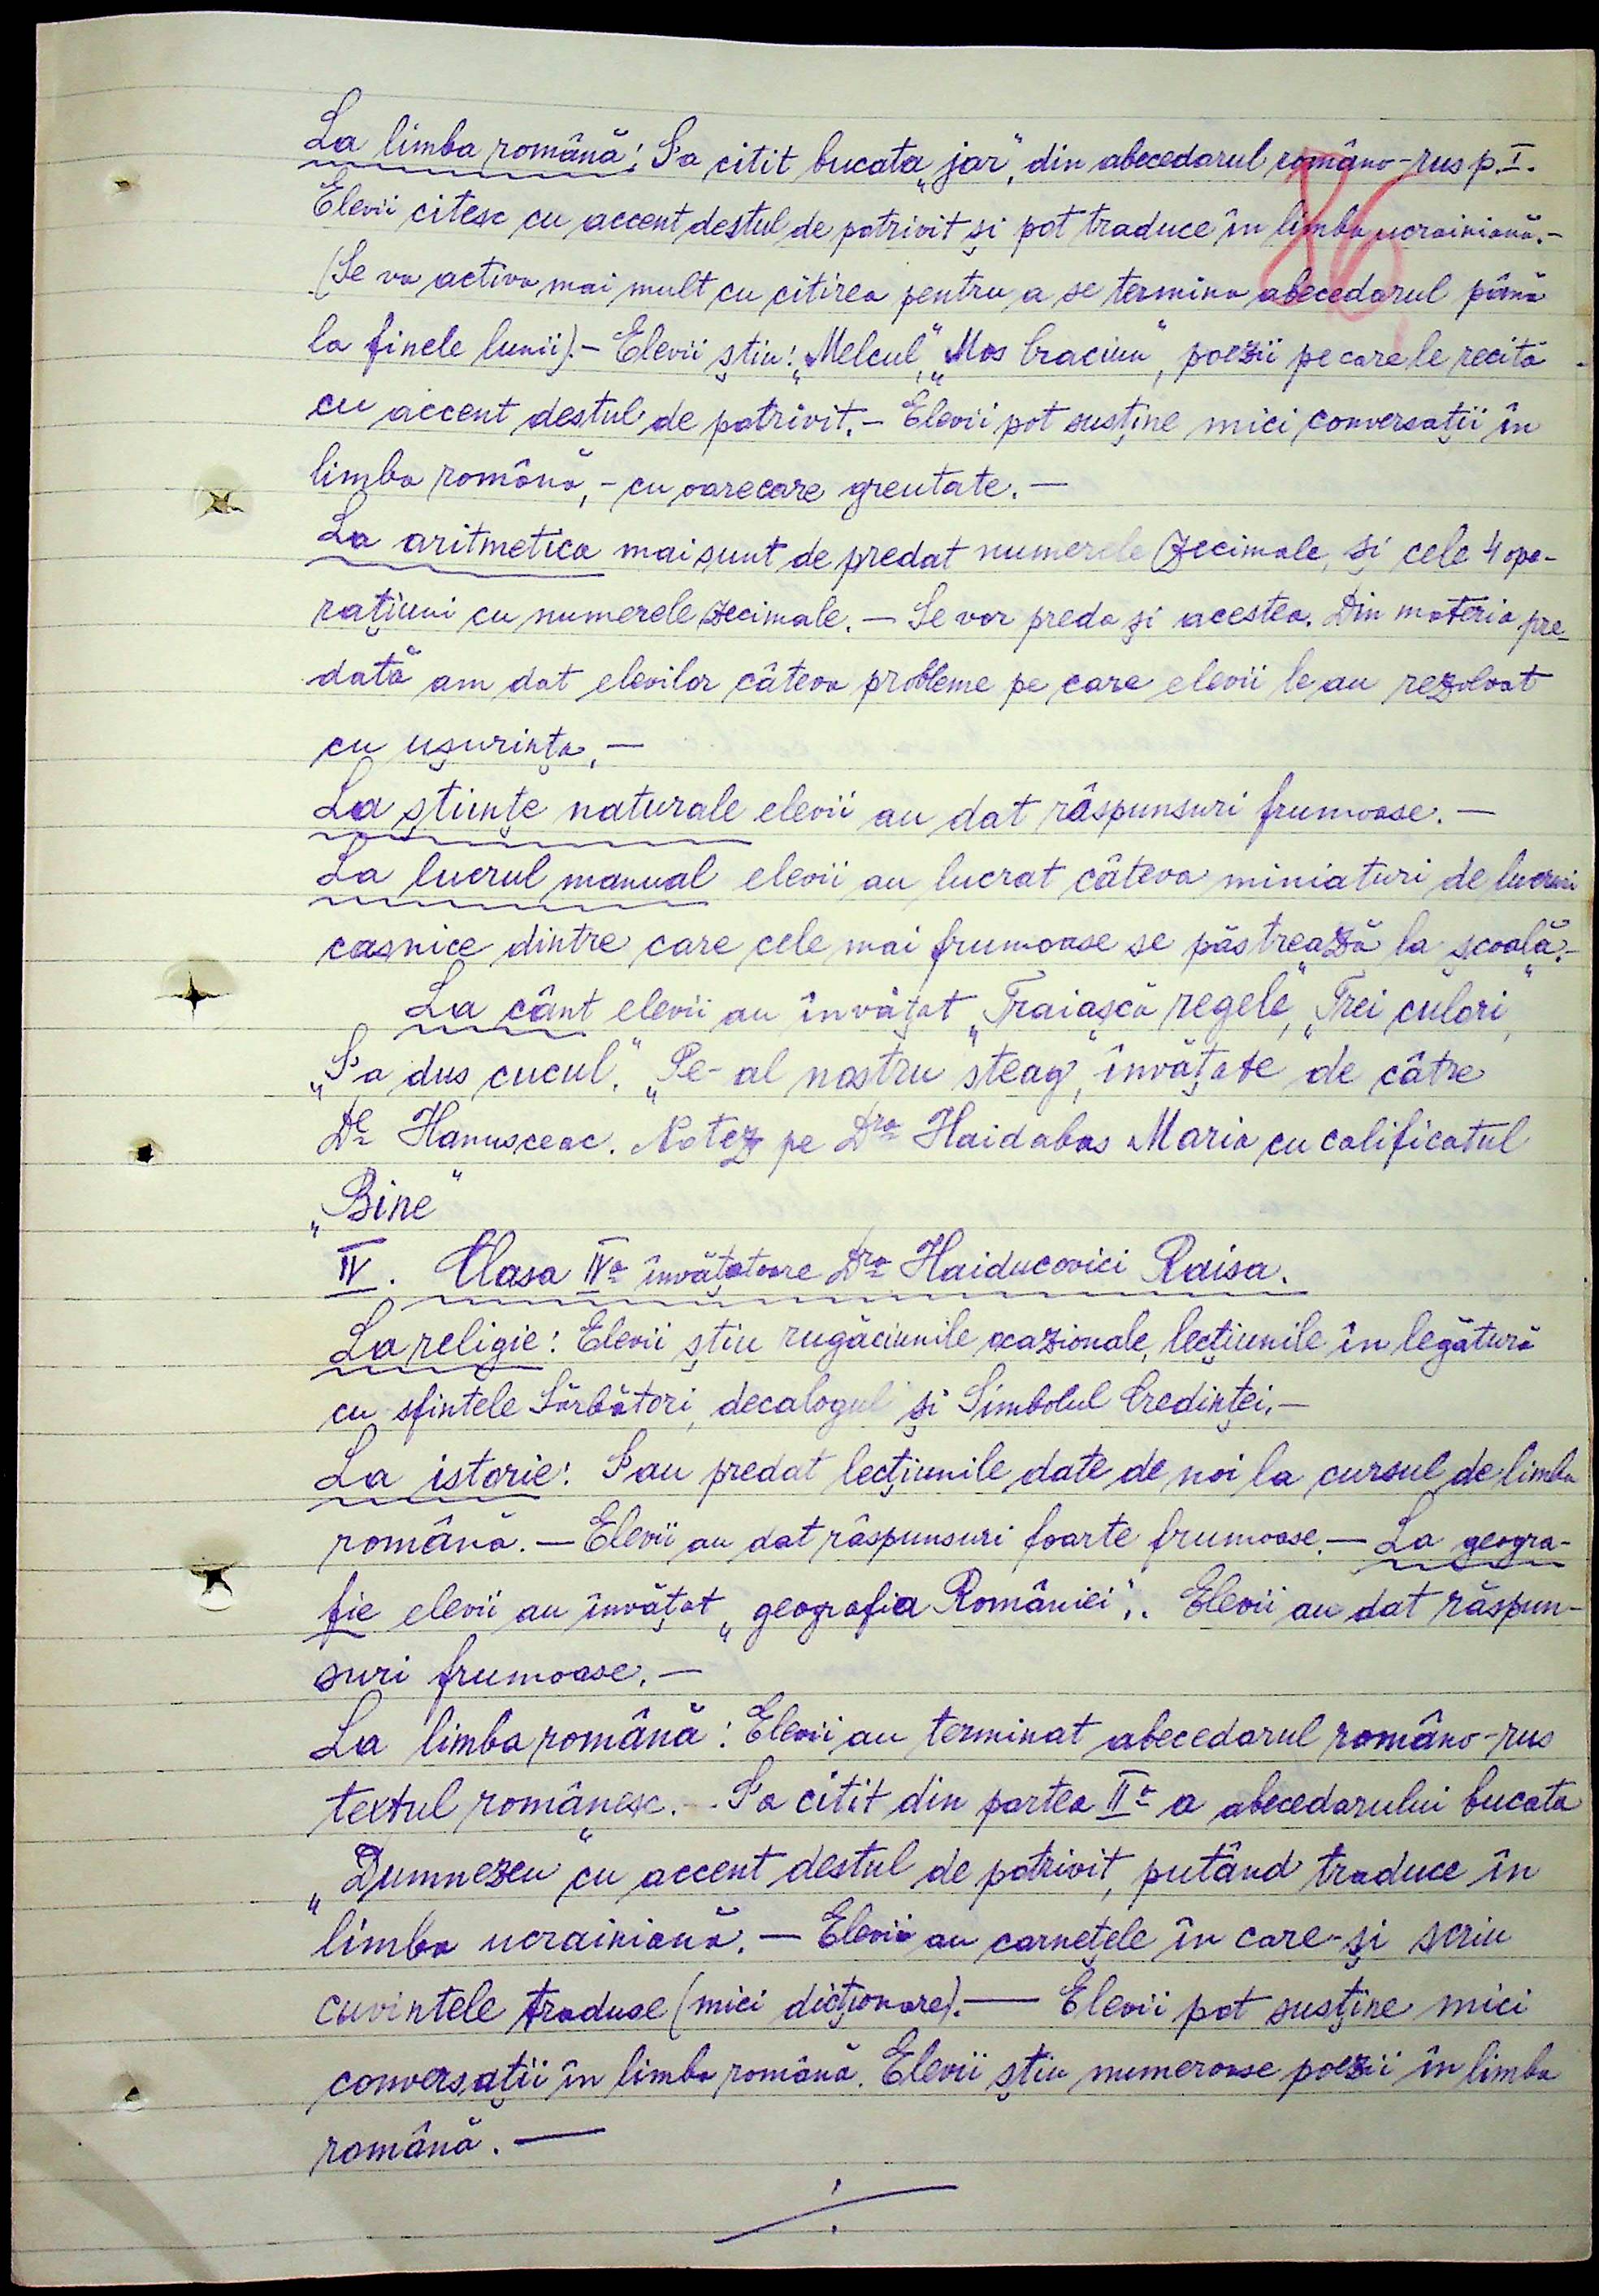 La limba română: S'a citit bucata „jar", din abecedarul româno-rus p. I.
86
Elevii citesc cu accent destul de potrivit și pot traduce în limba ucrainiană.-
(Se va activa mai mult cu citirea pentru a se termina abecedarul până
la finele lunii).- Elevii știu: „Melcul", „Mos Craciun", poezii pe care le recită
cu accent destul de potrivit.- Elevii pot susține mici conversații în
limba română, - cu oarecare greutate. —
La aritmetica mai sunt de predat numerele zecimale, și cele 4 ope-
rațiuni cu numerele zecimale. — Se vor preda și acestea. Din materia pre-
dată am dat elevilor câteva probleme pe care elevii le au rezolvat
cu ușurința, —
La științe naturale elevii au dat răspunsuri frumoase. —
La lucrul manual elevii au lucrat câteva miniaturi de lucruri
casnice dintre care cele mai frumoase se păstrează la școală.-
La cânt elevii au învățat „Traiască regele", „Trei culori",
„S'a dus cucul". „Pe-al nostru steag", învățate de către
Dl Hanusceac. Notez pe Dra Haidabas Maria cu calificatul
„Bine"
IV. Clasa IVa învățatoare Dra Haiducovici Raisa.
La religie: Elevii știu rugăciunile ocazionale, lecțiunile în legătură
cu sfintele Sărbători, decalogul și Simbolul Credinței. —
La istorie: S'au predat lecțiunile date de noi la cursul de limba
română. — Elevii au dat răspunsuri foarte frumoase. — La geogra-
fie elevii au învățat „geografia României".. Elevii au dat răspun-
suri frumoase. —
La limba română: Elevii au terminat abecedarul româno-rus
textul românesc. - S'a citit din partea IIa a abecedarului bucata
„Dumnezeu" cu accent destul de potrivit, putând traduce în
limba ucrainiană. — Elevii au carnețele în care-și scriu
cuvintele traduse (mici dicționare). — Elevii pot susține mici
conversații în limba română. Elevii știu numeroase poezii în limba
română. —